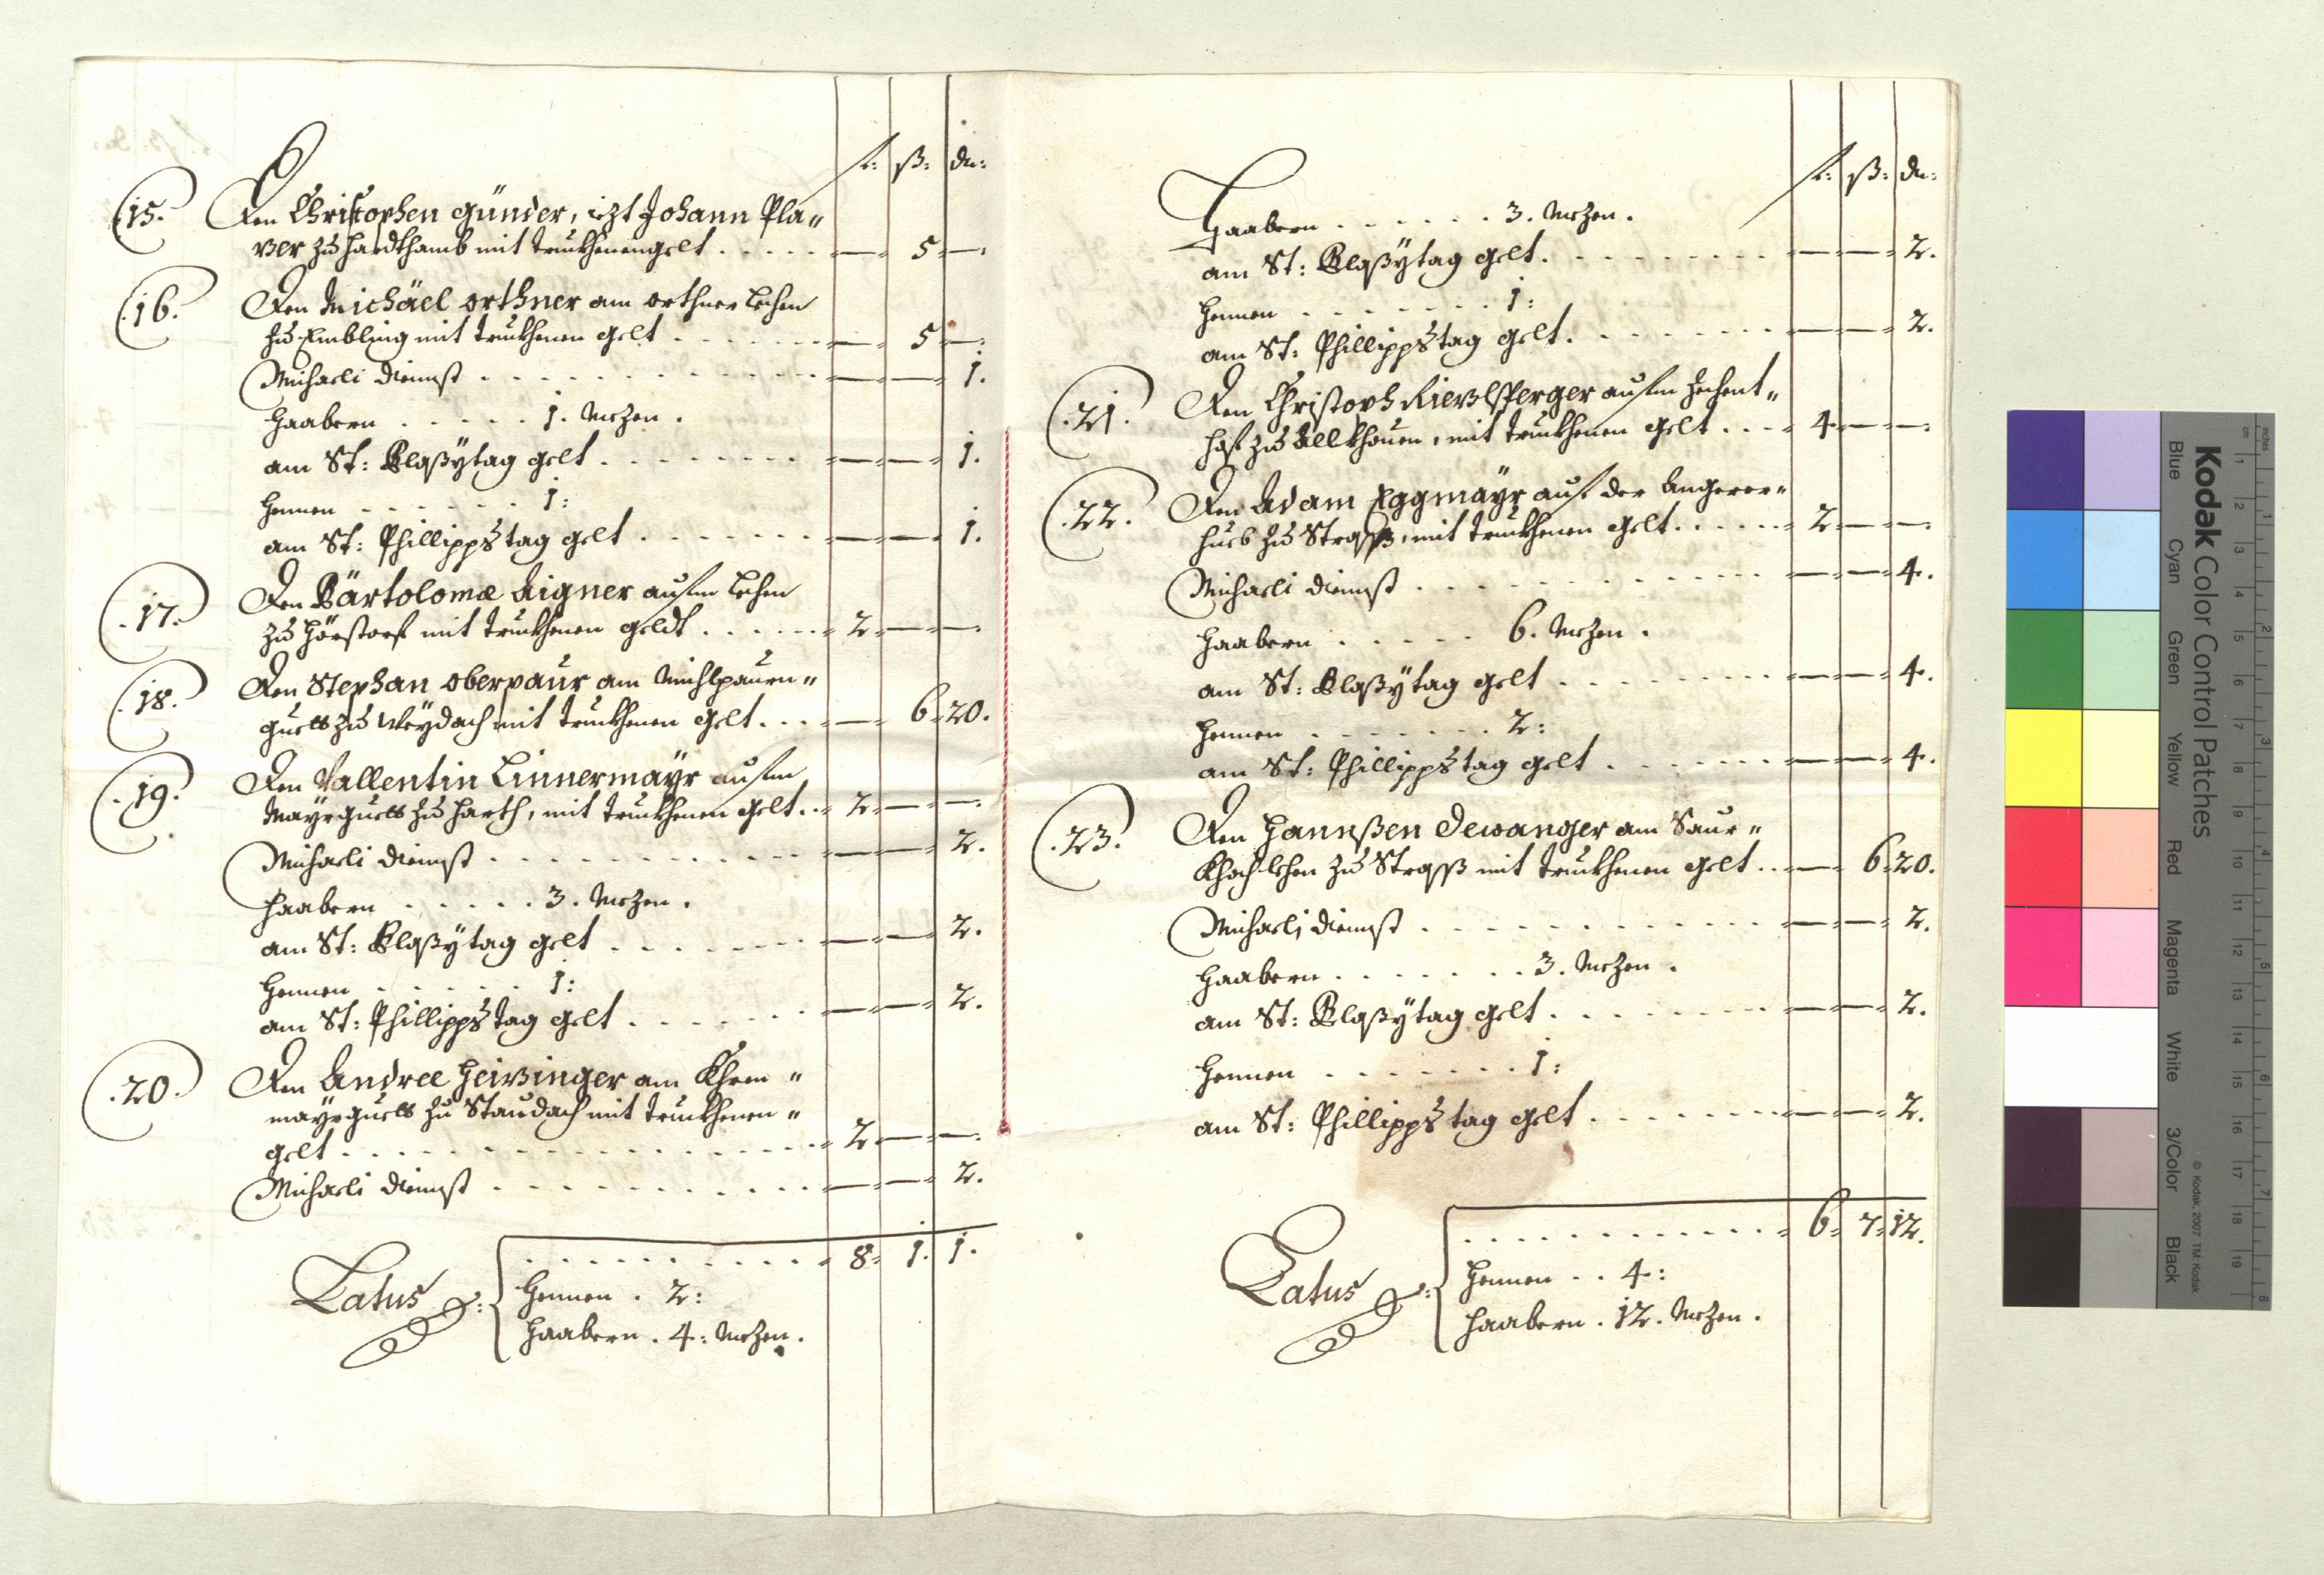 f: ß: dn:
15. Den Christophen Günder, iezt Johann Pla„
ver zu Hardthamb mit truckhenengelt . . . . . — 5 —
16. Den Michäel Orthner am Orthner Lehen
zu Embling mit truckhenen gelt . . . . . . — 5 —
Michaeli dienst . . . . . . . . . . . — — 1.
Haabern . . . . . 1. Mezen .
am St: Blaßÿtag gelt . . . . . . . . — — 1.
Hennen . . . . . . 1:
am St: Phillippstag gelt . . . . . . . — — 1.
17. Den Bärtolomæ Aigner aufm Lehen
zu Hörstorf mit truckhenen geldt . . . . . . 2 — —
18. Den Stephan Oberpaur am Michlpauen„
guett zu Weÿdach mit truckhenen gelt . . . — 6 20.
19. Den Vallentin Linnermaÿr aufm
Maÿrguett zu Harth, mit truckhenen gelt . . 2 — —
Michaeli dienst . . . . . . . . . . . — — 2.
Haabern . . . . . 3. Mezen .
am St: Blaßÿtag gelt . . . . . . . — — 2.
Hennen . . . . . 1:
am St: Phillippstag gelt . . . . . . . — — 2.
20. Den Andree am Khrem„
maÿrguett zu Staudach mit truckhenen„
gelt . . . . . . . . . . . . . . . . 2 — —
Michaeli dienst . . . . . . . . . . . — — 2.
Latus . . . . . . . . . . 8 1. 1.
Hennen . 2:
Haabern . 4: Mezen .
f: ß: dn:
Haabern . . . . . . 3. Mezen .
am St: Blaßÿtag gelt . . . . . . . . — — 2.
Hennen . . . . . . . 1:
am St: Phillippstag gelt . . . . . . . — — 2.
21. Den Christoph aufm Zechent„
hof zu Allkhouen, mit truckhenen gelt . . . 4 — —
22. Den Adam Eggmaÿr auf der Angerer„
hueb zu Straß, mit truckhenen gelt . . . . . 2 — —
Michaeli dienst . . . . . . . . . . . — — 4.
Haabern . . . . . 6. Mezen .
am St: Blaßÿtag gelt . . . . . . . . — — 4.
Hennen . . . . . . . 2:
am St: Phillippstag gelt . . . . . . . — — 4.
23. Den Hannßen Dewanger am Saur„
Khochlehen zu Straß mit truckhenen gelt . . — 6 20.
Michaeli dienst . . . . . . . . . . . — — 2.
Haabern . . . . . . . 3. Mezen .
am St: Blaßÿtag gelt . . . . . . . . — — 2.
Hennen . . . . . . . 1:
am St: Phillippstag gelt . . . . . . . — — 2.
Latus . . . . . . . . . . . . 6 7 12.
Hennen . . 4:
Haabern . 12. Mezen .
Kodak Color Control Patches
Blue Cyan Green Yellow Red Magenta White 3/Color Black
© Kodak, 2007 TM: Kodak
inches 1 2 3 4 5 6 7 8
cm 1 2 3 4 5 6 7 8 9 10 11 12 13 14 15 16 17 18 19